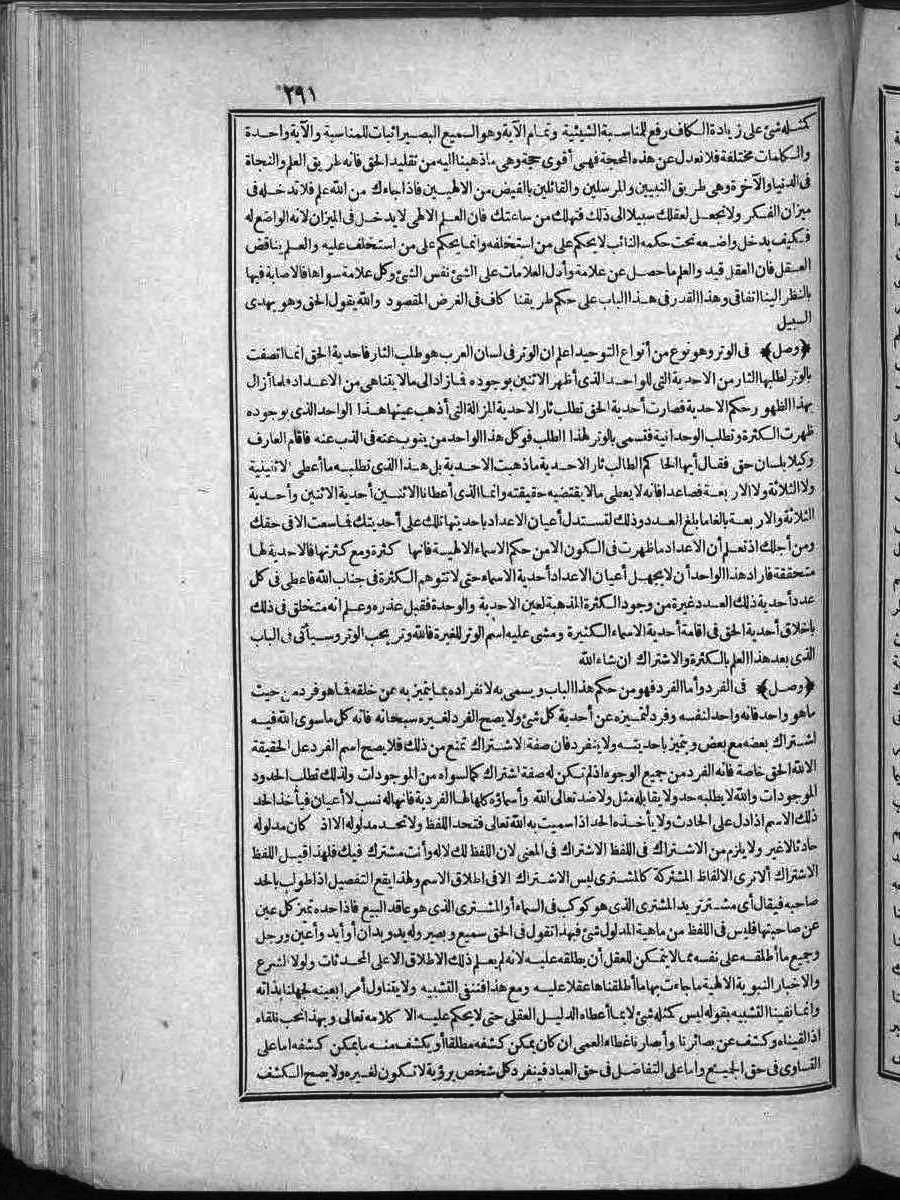 ٢٩١
كمثله شئ على زيادة الكاف رفع للمناسبة الشيئية وتمام الآية وهو السميع البصير اثبات للمناسبة والآية واحدة
والكلمات مختلفة فلا نعدل عن هذه المحجة فهى أقوى حجة وهى ما ذهبنا اليه من تقليد الحق فانه طريق العلم والنجاة
فى الدنيا والآخرة وهى طريق النبيين والمرسلين والقائلين بالفيض من الالهيين فاذا جاءك من الله علم فلا تدخله فى
ميزان الفكر ولا تجعل لعقلك سبيلا الى ذلك فتهلك من ساعتك فان العلم الالهى لا يدخل فى الميزان لانه الواضع له
فكيف يدخل واضعه تحت حكمه النائب لا يحكم على من استخلفه وانما يحكم على من استخلف عليه والعلم يناقض
العقل فان العقل قيد والعلم ما حصل عن علامة وأدل العلامات على الشئ نفس الشئ وكل علامة سواها فالاصابة فيها
بالنظر الينا اتفاقى وهذا القدر فى هذا الباب على حكم طريقنا كاف فى الغرض المقصود والله يقول الحق وهو يهدى
السبيل
﴿وصل﴾ فى الوتر وهو نوع من أنواع التوحيد اعلم ان الوتر فى لسان العرب هو طلب الثار فاحدية الحق انما اتصفت
بالوتر لطلبها الثار من الاحدية التى للواحد الذى أظهر الاثنين بوجوده فزاد الى ما لا يتناهى من الاعداد فلما أزال
بهذا الظهور حكم الاحدية فصارت أحدية الحق تطلب ثار الاحدية المزالة التى أذهب عينها هذا الواحد الذى بوجوده
ظهرت الكثرة وتطلب الوحدانية فتسمى بالوتر لهذا الطلب فوكل هذا الواحد من ينوب عنه فى الذب عنه فاقام العارف
وكيلا بلسان حق فقال أيها الحاكم الطالب ثار الاحدية ما ذهبت الاحدية بل هذا الذى تطلبه ما أعطى الاثنينية
ولا الثلاثة ولا الاربعة فصاعدا فانه لا يعطى ما لا يقتضيه حقيقته وانما الذى أعطانا الاثنين أحدية الاثنين وأحدية
الثلاثة والاربعة بالغا ما بلغ العدد وذلك لتستدل أعيان الاعداد باحديتها تلك على أحديتك فما سعت الا فى حقك
ومن أجلك اذ تعلم أن الاعداد ما ظهرت فى الكون الا من حكم الاسماء الالهية فانها كثرة ومع كثرتها فالاحدية لها
متحققة فاراد هذا الواحد أن لا يجهل أعيان الاعداد أحدية الاسماء حتى لا تتوهم الكثرة فى جناب الله فاعطى فى كل
عدد أحدية ذلك العدد غيرة من وجود الكثرة المذهبة لعين الاحدية والوحدة فقبل عذره وعلم انه متخلق فى ذلك
باخلاق أحدية الحق فى اقامة أحدية الاسماء الكثيرة ومشى عليه اسم الوتر للغيرة فالله وتر يحب الوتر وسيأتى فى الباب
الذى بعد هذا العلم بالكثرة والاشتراك ان شاء الله
﴿وصل﴾ فى الفرد وأما الفرد فهو من حكم هذا الباب ويسمى به لانفراده بما يتميز به عن خلقه فما هو فرد من حيث
ما هو واحد فانه واحد لنفسه وفرد لتميزه عن أحدية كل شئ ولا يصح الفرد لغيره سبحانه فانه كل ما سوى الله فيه
اشتراك بعضه مع بعض ويتميز باحديته ولا ينفرد فان صفة الاشتراك تمنع من ذلك فلا يصح اسم الفرد على الحقيقة
الا لله الحق خاصة فانه الفرد من جميع الوجوه اذ لم تكن له صفة اشتراك كما لسواه من الموجودات ولذلك تطلب الحدود
الموجودات والله لا يطلبه حد ولا يقابله مثل ولا ضد تعالى الله وأسماؤه كلها لها الفردية فانها له نسب لا أعيان فيأخذ الحد
ذلك الاسم اذا دل على الحادث ولا يأخذه الحد اذا سميت به الله تعالى فتحد اللفظ ولا تحد مدلوله الا اذ كان مدلوله
حادثا لا غير ولا يلزم من الاشتراك فى اللفظ الاشتراك فى المعنى لان اللفظ لك لا له وأنت مشترك فيك فلهذا قبل اللفظ
الاشتراك ألا ترى الالفاظ المشتركة كالمشترى ليس الاشتراك الا فى اطلاق الاسم ولهذا يقع التفصيل اذا طولب بالحد
صاحبه فيقال أى مشتر تريد المشترى الذى هو كوكب فى السماء أو المشترى الذى هو عاقد البيع فاذا حده تميز كل عين
عن صاحبتها فليس فى اللفظ من ماهية المدلول شئ فبهذا تقول فى الحق سميع وبصير وله يد ويدان أو أيد وأعين ورجل
وجميع ما أطلقه على نفسه مما لا يتمكن للعقل أن يطلقه عليه لانه لم يعلم ذلك الاطلاق الا على المحدثات ولولا الشرع
والاخبار النبوية الالهية ما جاءت بها ما أطلقناها عقلا عليه ومع هذا فننفى التشبيه ولا يتناول أمرا بعينه لجهلنا بذاته
وانما نفينا التشبيه بقوله ليس كمثله شئ لا بما أعطاه الدليل العقلى حتى لا يحكم عليه الا كلامه تعالى وبهذا نحب نلقاه
اذا لقيناه وكشف عن بصائرنا وأبصارنا غطاء العمى ان كان يمكن كشفه مطلقا أو يكشف منه ما يمكن كشفه اما على
التساوى فى حق الجميع واما على التفاضل فى حق العباد فينفرد كل شخص برؤية لا تكون لغيره ولا يصح الكشف